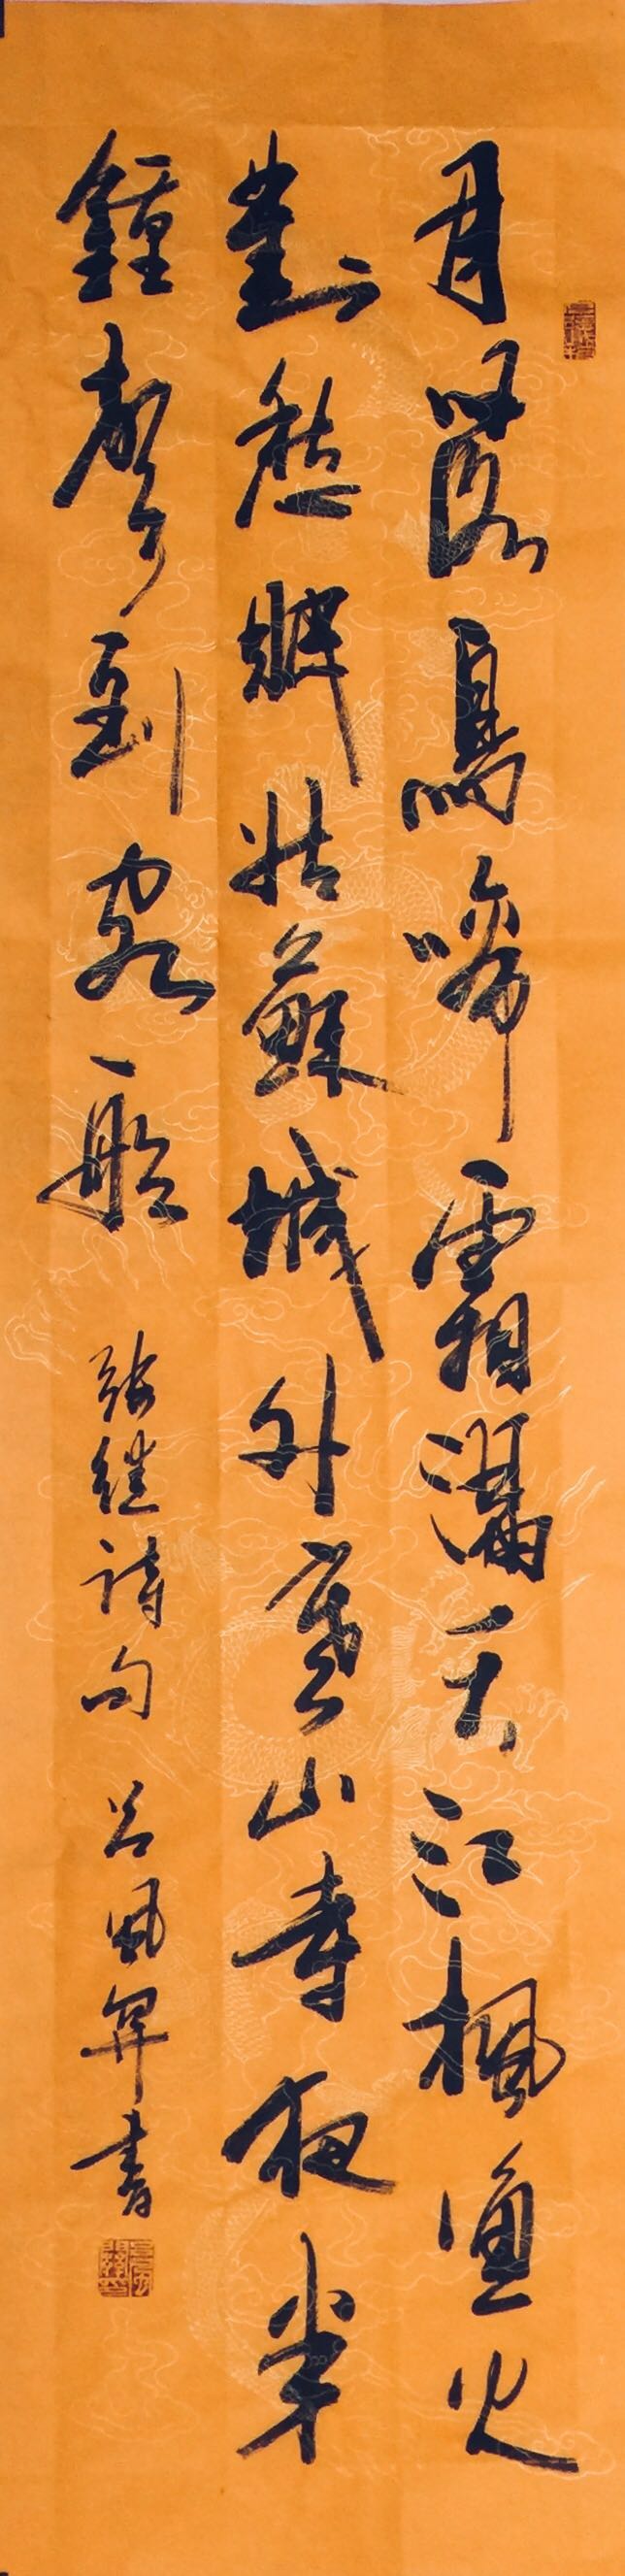 月落烏啼霜滿天江楓漁火
對愁眠姑蘇城外寒山寺夜半
鍾聲到客船 張繼詩句 呂風書